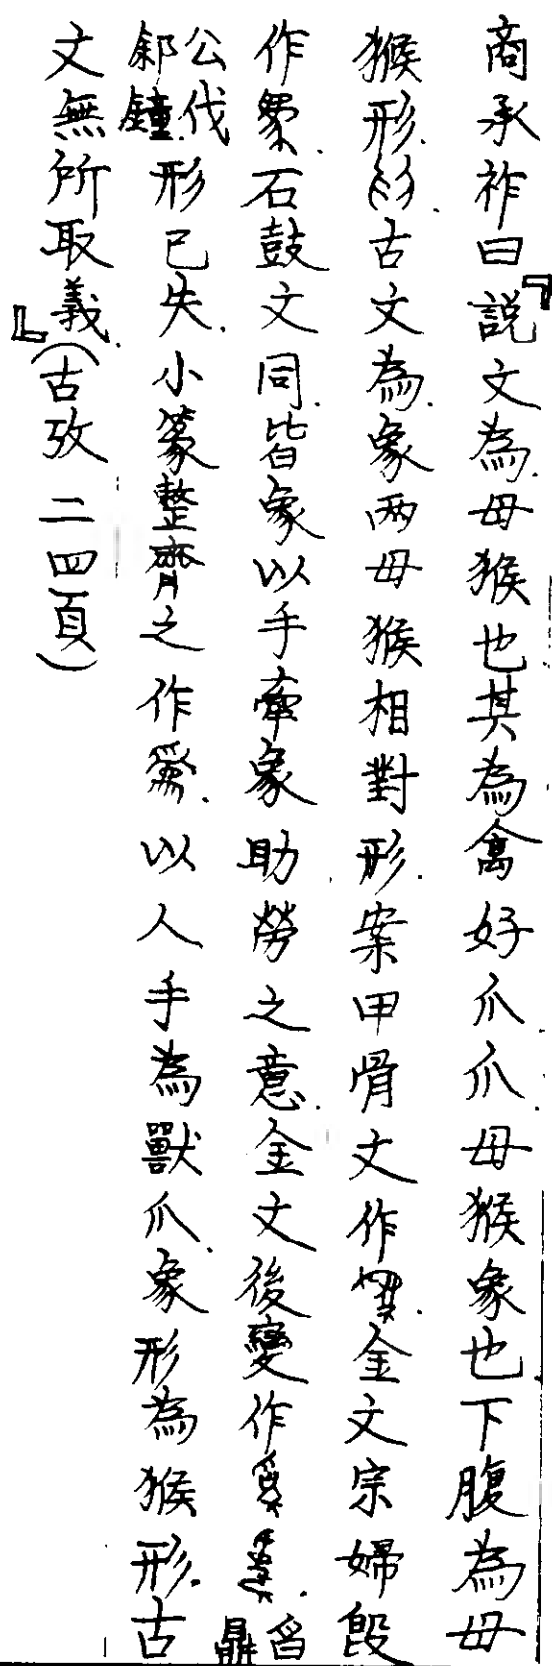 商承祚曰『説文為母猴也其為禽好爪爪母猴象也下腹為母
猴形古文為象两母猴相對形案甲骨文作金文宗婦𣪘
作石鼓文同皆象以手牽象助勞之意金文後變作鼎
公伐郤鐘形已失小篆整齊之作以人手為獸爪象形為猴形古
文無所取義』(古攷二四頁)